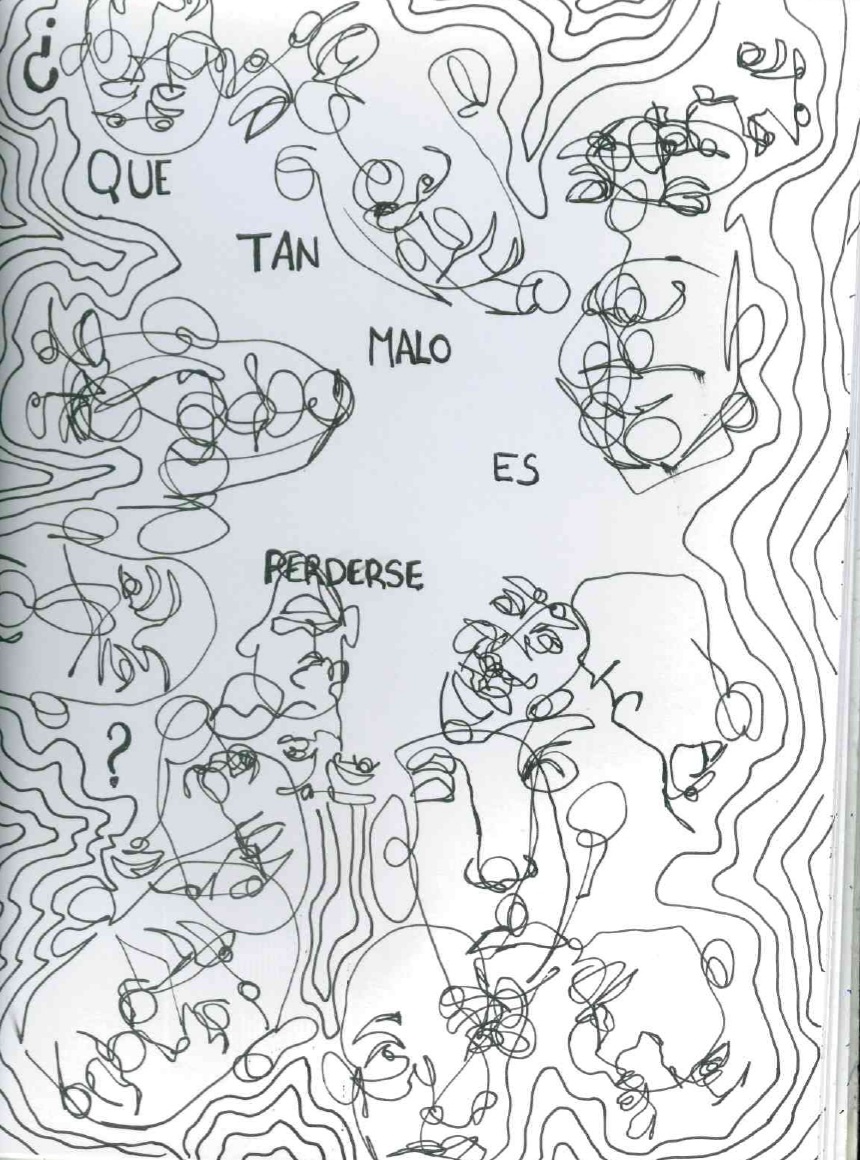 ¿
QUE
TAN
MALO
ES
PERDERSE
?